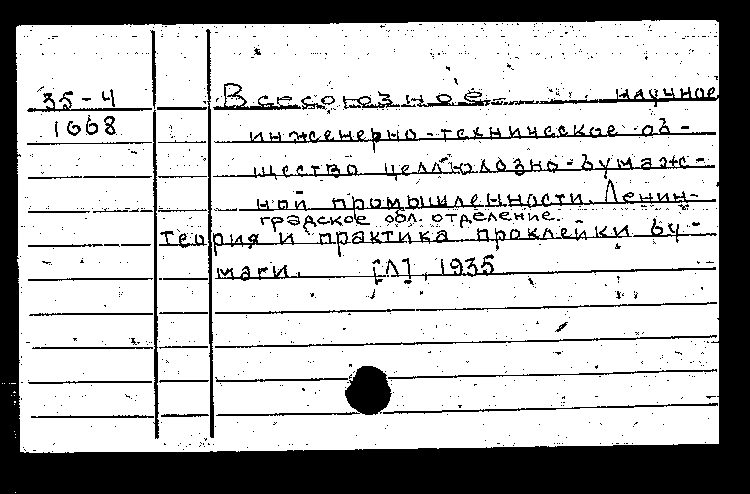 35-4 Всесоюзное научное
1668 инженерно-техническое об-
щество целлюлозно-бумаж-
ной промышленности. Ленин-
градское обл. отделение.
Теория и практика проклейки бу-
маги. [Л], 1935